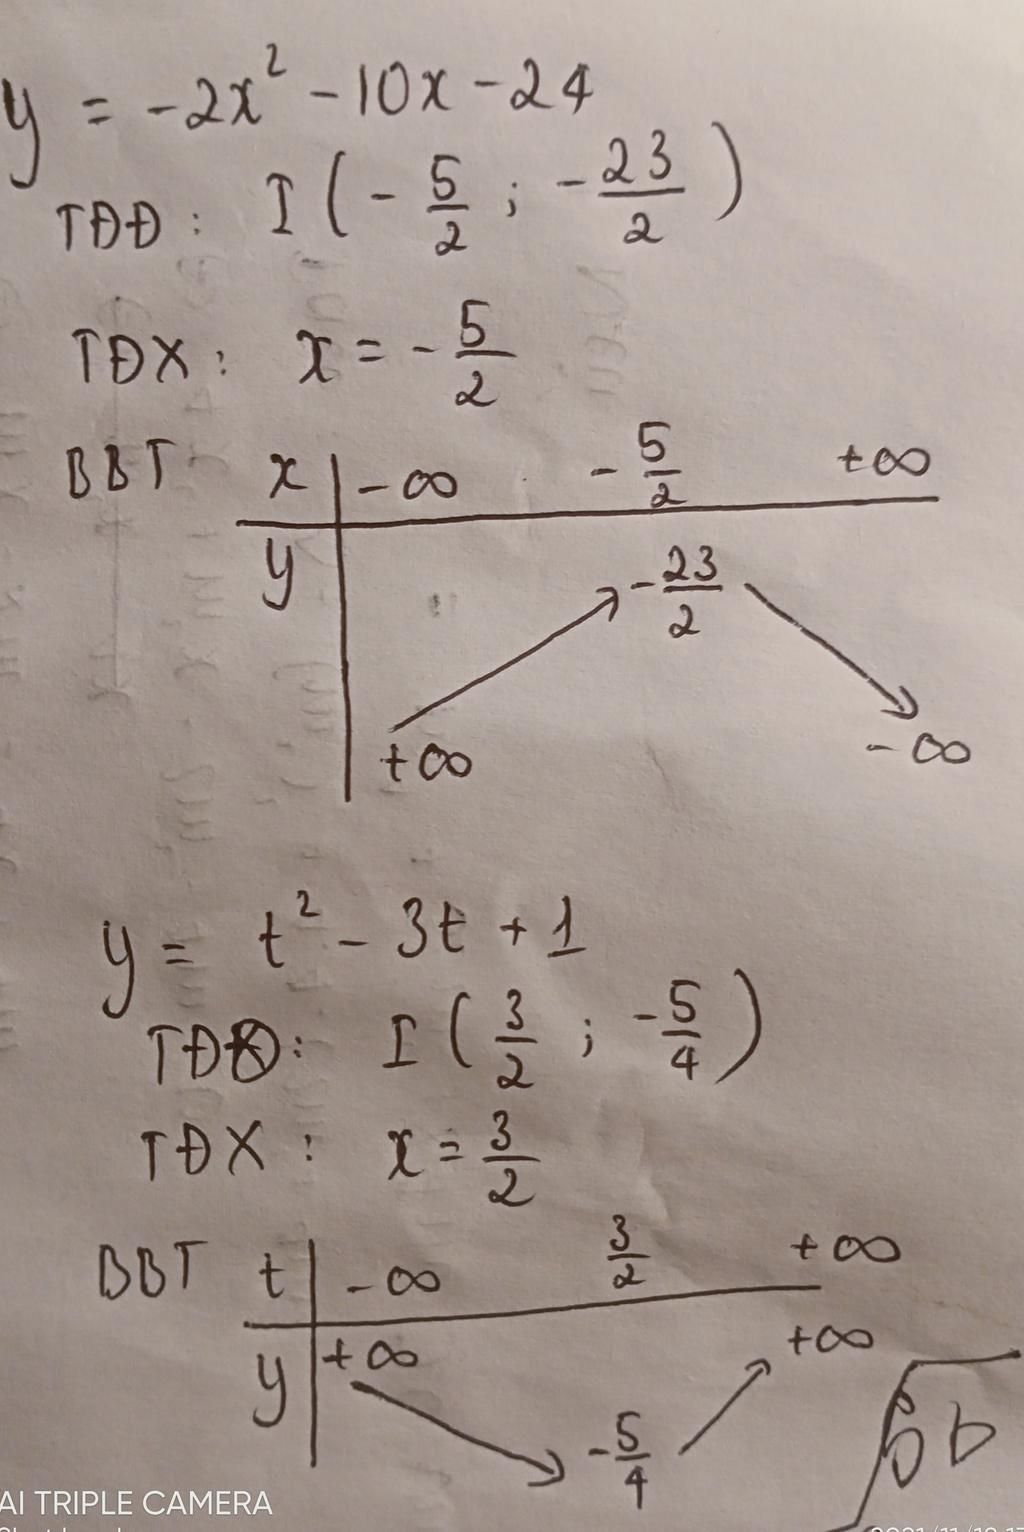 y = -2x² - 10x - 24
TĐĐ : I ( - 5/2 ; - 23/2 )
TĐX : x = - 5/2
BBT x | -∞ - 5/2 +∞
y | +∞ ↗ - 23/2 ↘ -∞
y = t² - 3t + 1
TĐĐ : I ( 3/2 ; - 5/4 )
TĐX : x = 3/2
BBT t | -∞ 3/2 +∞
y | +∞ ↘ - 5/4 ↗ +∞
AI TRIPLE CAMERA